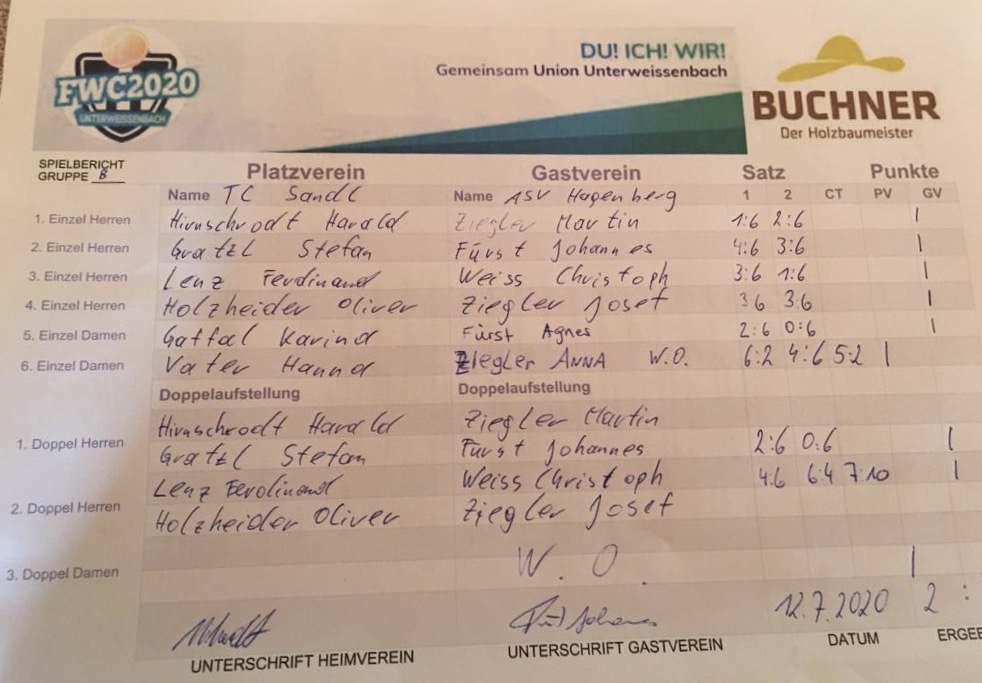 FWC2020
UNTERWEISSENBACH
DU! ICH! WIR!
Gemeinsam Union Unterweissenbach
BUCHNER
Der Holzbaumeister
SPIELBERICHT
GRUPPE B
Platzverein Gastverein Satz Punkte
Name TC Sandl Name ASV Hagenberg 1 2 CT PV GV
1. Einzel Herren Hirnschrodt Harald Ziegler Martin 1:6 2:6 |
2. Einzel Herren Gratzl Stefan Fürst Johannes 4:6 3:6 |
3. Einzel Herren Lenz Ferdinand Weiss Christoph 3:6 1:6 |
4. Einzel Herren Holzheider Oliver Ziegler Josef 3 6 3:6 |
5. Einzel Damen Gaffal Karina Fürst Agnes 2:6 0:6 |
6. Einzel Damen Vater Hanna Ziegler ANNA W.O. 6:2 4:6 5:2 |
Doppelaufstellung Doppelaufstellung
Hirnschrodt Harald Ziegler Martin
1. Doppel Herren Gratzl Stefan Fürst Johannes 2:6 0:6 |
Lenz Ferdinand Weiss Christoph 4:6 6:4 7:10 |
2. Doppel Herren Holzheider Oliver Ziegler Josef
3. Doppel Damen W. O. |
12.7.2020 2 :
UNTERSCHRIFT HEIMVEREIN UNTERSCHRIFT GASTVEREIN DATUM